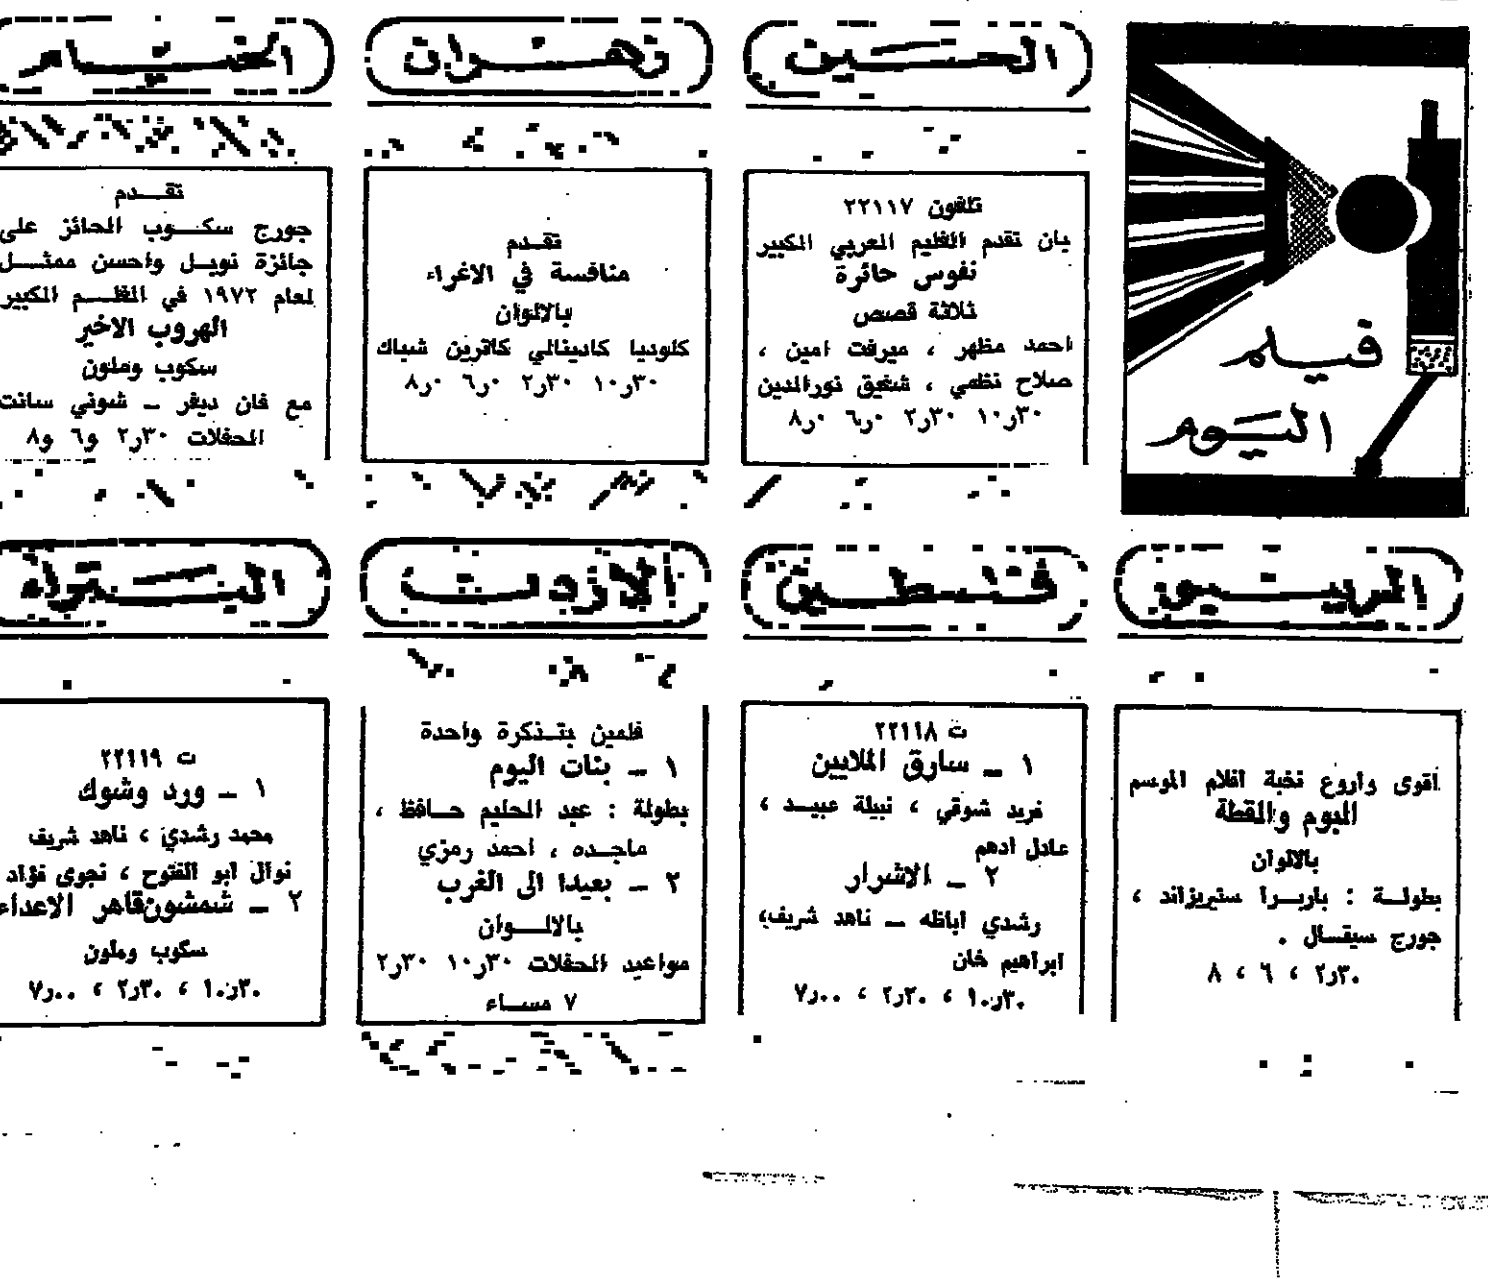 فيلم
اليوم
الحسين
تلفون ٢٢١١٧
بان تقدم الفليم العربي الكبير
نفوس حائرة
ثلاثة قصص
احمد مظهر ، ميرفت امين ،
صلاح نظمي ، شفيق نورالدين
١٠٫٣٠ ٢٫٣٠ ٦٫٠ ٨٫٠
زهران
تقدم
منافسة في الاغراء
بالالوان
كلوديا كادينالي كاترين شباك
١٠٫٣٠ ٢٫٣٠ ٦٫٠ ٨٫٠
الخيام
تقدم
جورج سكوب الحائز على
جائزة نوبل واحسن ممثل
لعام ١٩٧٢ في الفلم الكبير
الهروب الاخير
سكوب وملون
مع فان ديفر ـ شوني سانت
الحفلات ٢٫٣٠ و٦ و٨
الريفيو
اقوى واروع نخبة افلام الموسم
البوم والقطة
بالالوان
بطولة : باربرا ستريزاند ،
جورج سيقال .
٢٫٣٠ ، ٦ ، ٨
فلسطين
ت ٢٢١١٨
١ ـ سارق الملايين
فريد شوقي ، نبيلة عبيد ،
عادل ادهم
٢ ـ الاشرار
رشدي اباظه ـ ناهد شريف،
ابراهيم خان
١٠٫٣٠ ، ٢٫٣٠ ، ٧٫٠٠
الاردن
فلمين بتذكرة واحدة
١ ـ بنات اليوم
بطولة : عبد الحليم حافظ ،
ماجده ، احمد رمزي
٢ ـ بعيدا الى الغرب
بالالوان
مواعيد الحفلات ١٠٫٣٠ ٢٫٣٠
٧ مساء
البتراء
ت ٢٢١١٩
١ ـ ورد وشوك
محمد رشدي ، ناهد شريف
نوال ابو الفتوح ، نجوى فؤاد
٢ ـ شمشون قاهر الاعداء
سكوب وملون
١٠٫٣٠ ، ٢٫٣٠ ، ٧٫٠٠